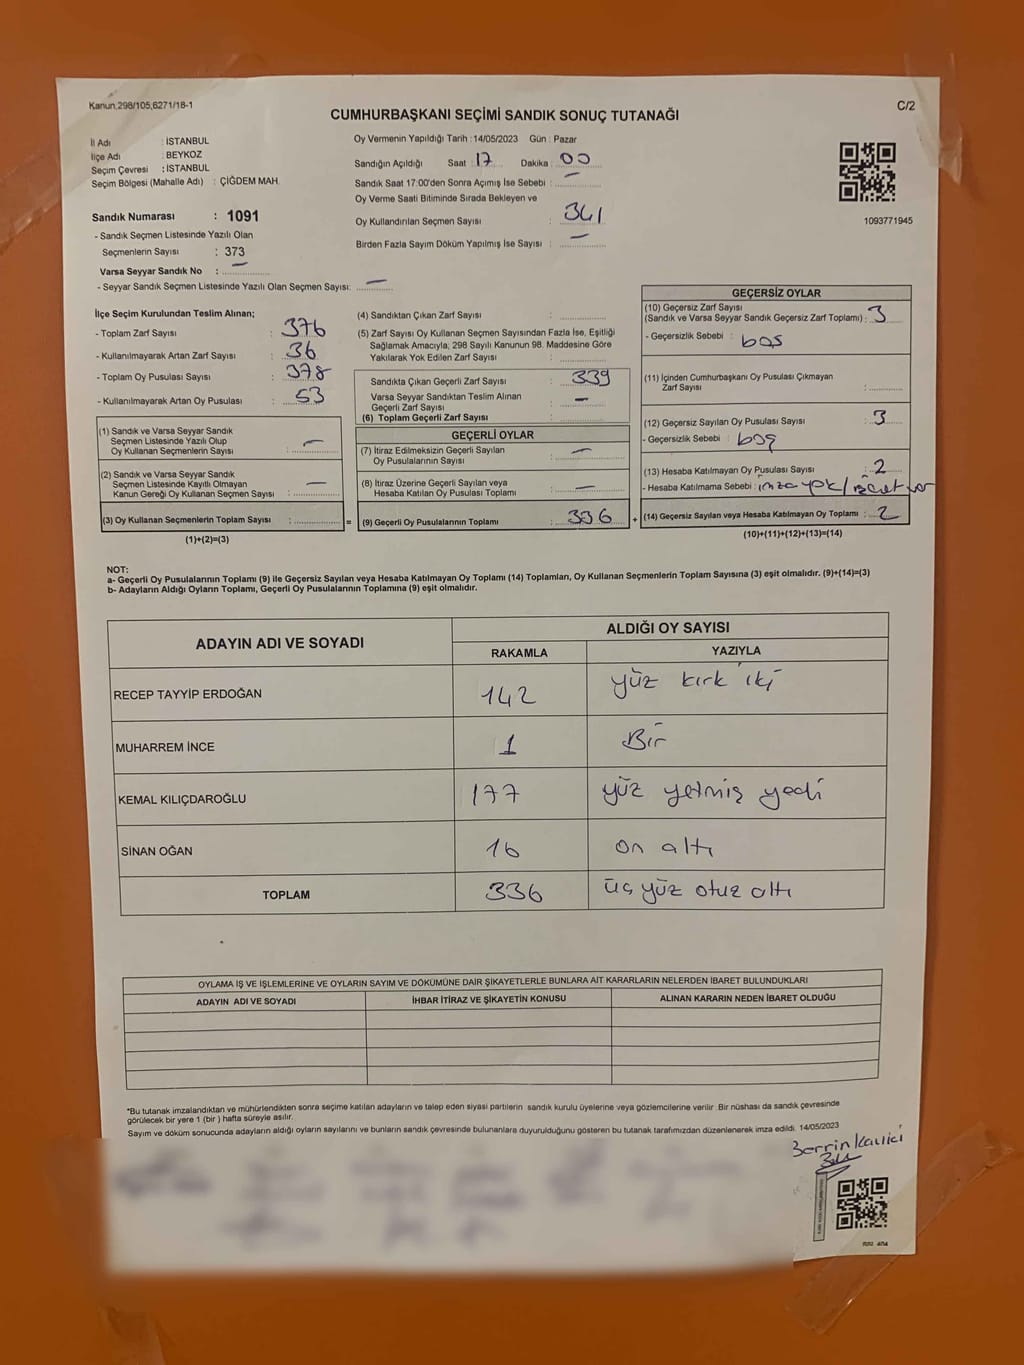 Kanun,298/105,6271/18-1
C/2
CUMHURBAŞKANI SEÇİMİ SANDIK SONUÇ TUTANAĞI
İl Adı : İSTANBUL
İlçe Adı : BEYKOZ
Seçim Çevresi : İSTANBUL
Seçim Bölgesi (Mahalle Adı) : ÇİĞDEM MAH.
Sandık Numarası : 1091
- Sandık Seçmen Listesinde Yazılı Olan
Seçmenlerin Sayısı : 373
Varsa Seyyar Sandık No : —
- Seyyar Sandık Seçmen Listesinde Yazılı Olan Seçmen Sayısı: —
Oy Vermenin Yapıldığı Tarih : 14/05/2023 Gün : Pazar
Sandığın Açıldığı Saat : 17 Dakika : 00
Sandık Saat 17:00'den Sonra Açımış İse Sebebi : —
Oy Verme Saati Bitiminde Sırada Bekleyen ve
Oy Kullandırılan Seçmen Sayısı : 341
Birden Fazla Sayım Döküm Yapılmış İse Sayısı : —
1093771945
İlçe Seçim Kurulundan Teslim Alınan;
- Toplam Zarf Sayısı : 376
- Kullanılmayarak Artan Zarf Sayısı : 36
- Toplam Oy Pusulası Sayısı : 378
- Kullanılmayarak Artan Oy Pusulası : 53
(1) Sandık ve Varsa Seyyar Sandık
Seçmen Listesinde Yazılı Olup
Oy Kullanan Seçmenlerin Sayısı : —
(2) Sandık ve Varsa Seyyar Sandık
Seçmen Listesinde Kayıtlı Olmayan
Kanun Gereği Oy Kullanan Seçmen Sayısı : —
(3) Oy Kullanan Seçmenlerin Toplam Sayısı : =
(1)+(2)=(3)
(4) Sandıktan Çıkan Zarf Sayısı :
(5) Zarf Sayısı Oy Kullanan Seçmen Sayısından Fazla İse, Eşitliği
Sağlamak Amacıyla; 298 Sayılı Kanunun 98. Maddesine Göre
Yakılarak Yok Edilen Zarf Sayısı :
Sandıkta Çıkan Geçerli Zarf Sayısı : 339
Varsa Seyyar Sandıktan Teslim Alınan
Geçerli Zarf Sayısı : —
(6) Toplam Geçerli Zarf Sayısı :
GEÇERLİ OYLAR
(7) İtiraz Edilmeksizin Geçerli Sayılan
Oy Pusulalarının Sayısı : —
(8) İtiraz Üzerine Geçerli Sayılan veya
Hesaba Katılan Oy Pusulası Toplamı : —
(9) Geçerli Oy Pusulalarının Toplamı : 336 +
GEÇERSİZ OYLAR
(10) Geçersiz Zarf Sayısı
(Sandık ve Varsa Seyyar Sandık Geçersiz Zarf Toplamı) : 3
- Geçersizlik Sebebi : boş
(11) İçinden Cumhurbaşkanı Oy Pusulası Çıkmayan
Zarf Sayısı :
(12) Geçersiz Sayılan Oy Pusulası Sayısı : 3
- Geçersizlik Sebebi : boş
(13) Hesaba Katılmayan Oy Pusulası Sayısı : 2
- Hesaba Katılmama Sebebi : imza yok/
(14) Geçersiz Sayılan veya Hesaba Katılmayan Oy Toplamı : 2
(10)+(11)+(12)+(13)=(14)
NOT:
a- Geçerli Oy Pusulalarının Toplamı (9) ile Geçersiz Sayılan veya Hesaba Katılmayan Oy Toplamı (14) Toplamları, Oy Kullanan Seçmenlerin Toplam Sayısına (3) eşit olmalıdır. (9)+(14)=(3)
b- Adayların Aldığı Oyların Toplamı, Geçerli Oy Pusulalarının Toplamına (9) eşit olmalıdır.
ADAYIN ADI VE SOYADI
ALDIĞI OY SAYISI
RAKAMLA YAZIYLA
RECEP TAYYİP ERDOĞAN 142 yüz kırk iki
MUHARREM İNCE 1 Bir
KEMAL KILIÇDAROĞLU 177 yüz yetmiş yedi
SİNAN OĞAN 16 on altı
TOPLAM 336 üç yüz otuz altı
OYLAMA İŞ VE İŞLEMLERİNE VE OYLARIN SAYIM VE DÖKÜMÜNE DAİR ŞİKAYETLERLE BUNLARA AİT KARARLARIN NELERDEN İBARET BULUNDUKLARI
ADAYIN ADI VE SOYADI İHBAR İTİRAZ VE ŞİKAYETİN KONUSU ALINAN KARARIN NEDEN İBARET OLDUĞU
*Bu tutanak imzalandıktan ve mühürlendikten sonra seçime katılan adayların ve talep eden siyasi partilerin sandık kurulu üyelerine veya gözlemcilerine verilir. Bir nüshası da sandık çevresinde
görülecek bir yere 1 (bir) hafta süreyle asılır.
Sayım ve döküm sonucunda adayların aldığı oyların sayılarını ve bunların sandık çevresinde bulunanlara duyurulduğunu gösteren bu tutanak tarafımızdan düzenlenerek imza edildi. 14/05/2023
Berrin Kavici